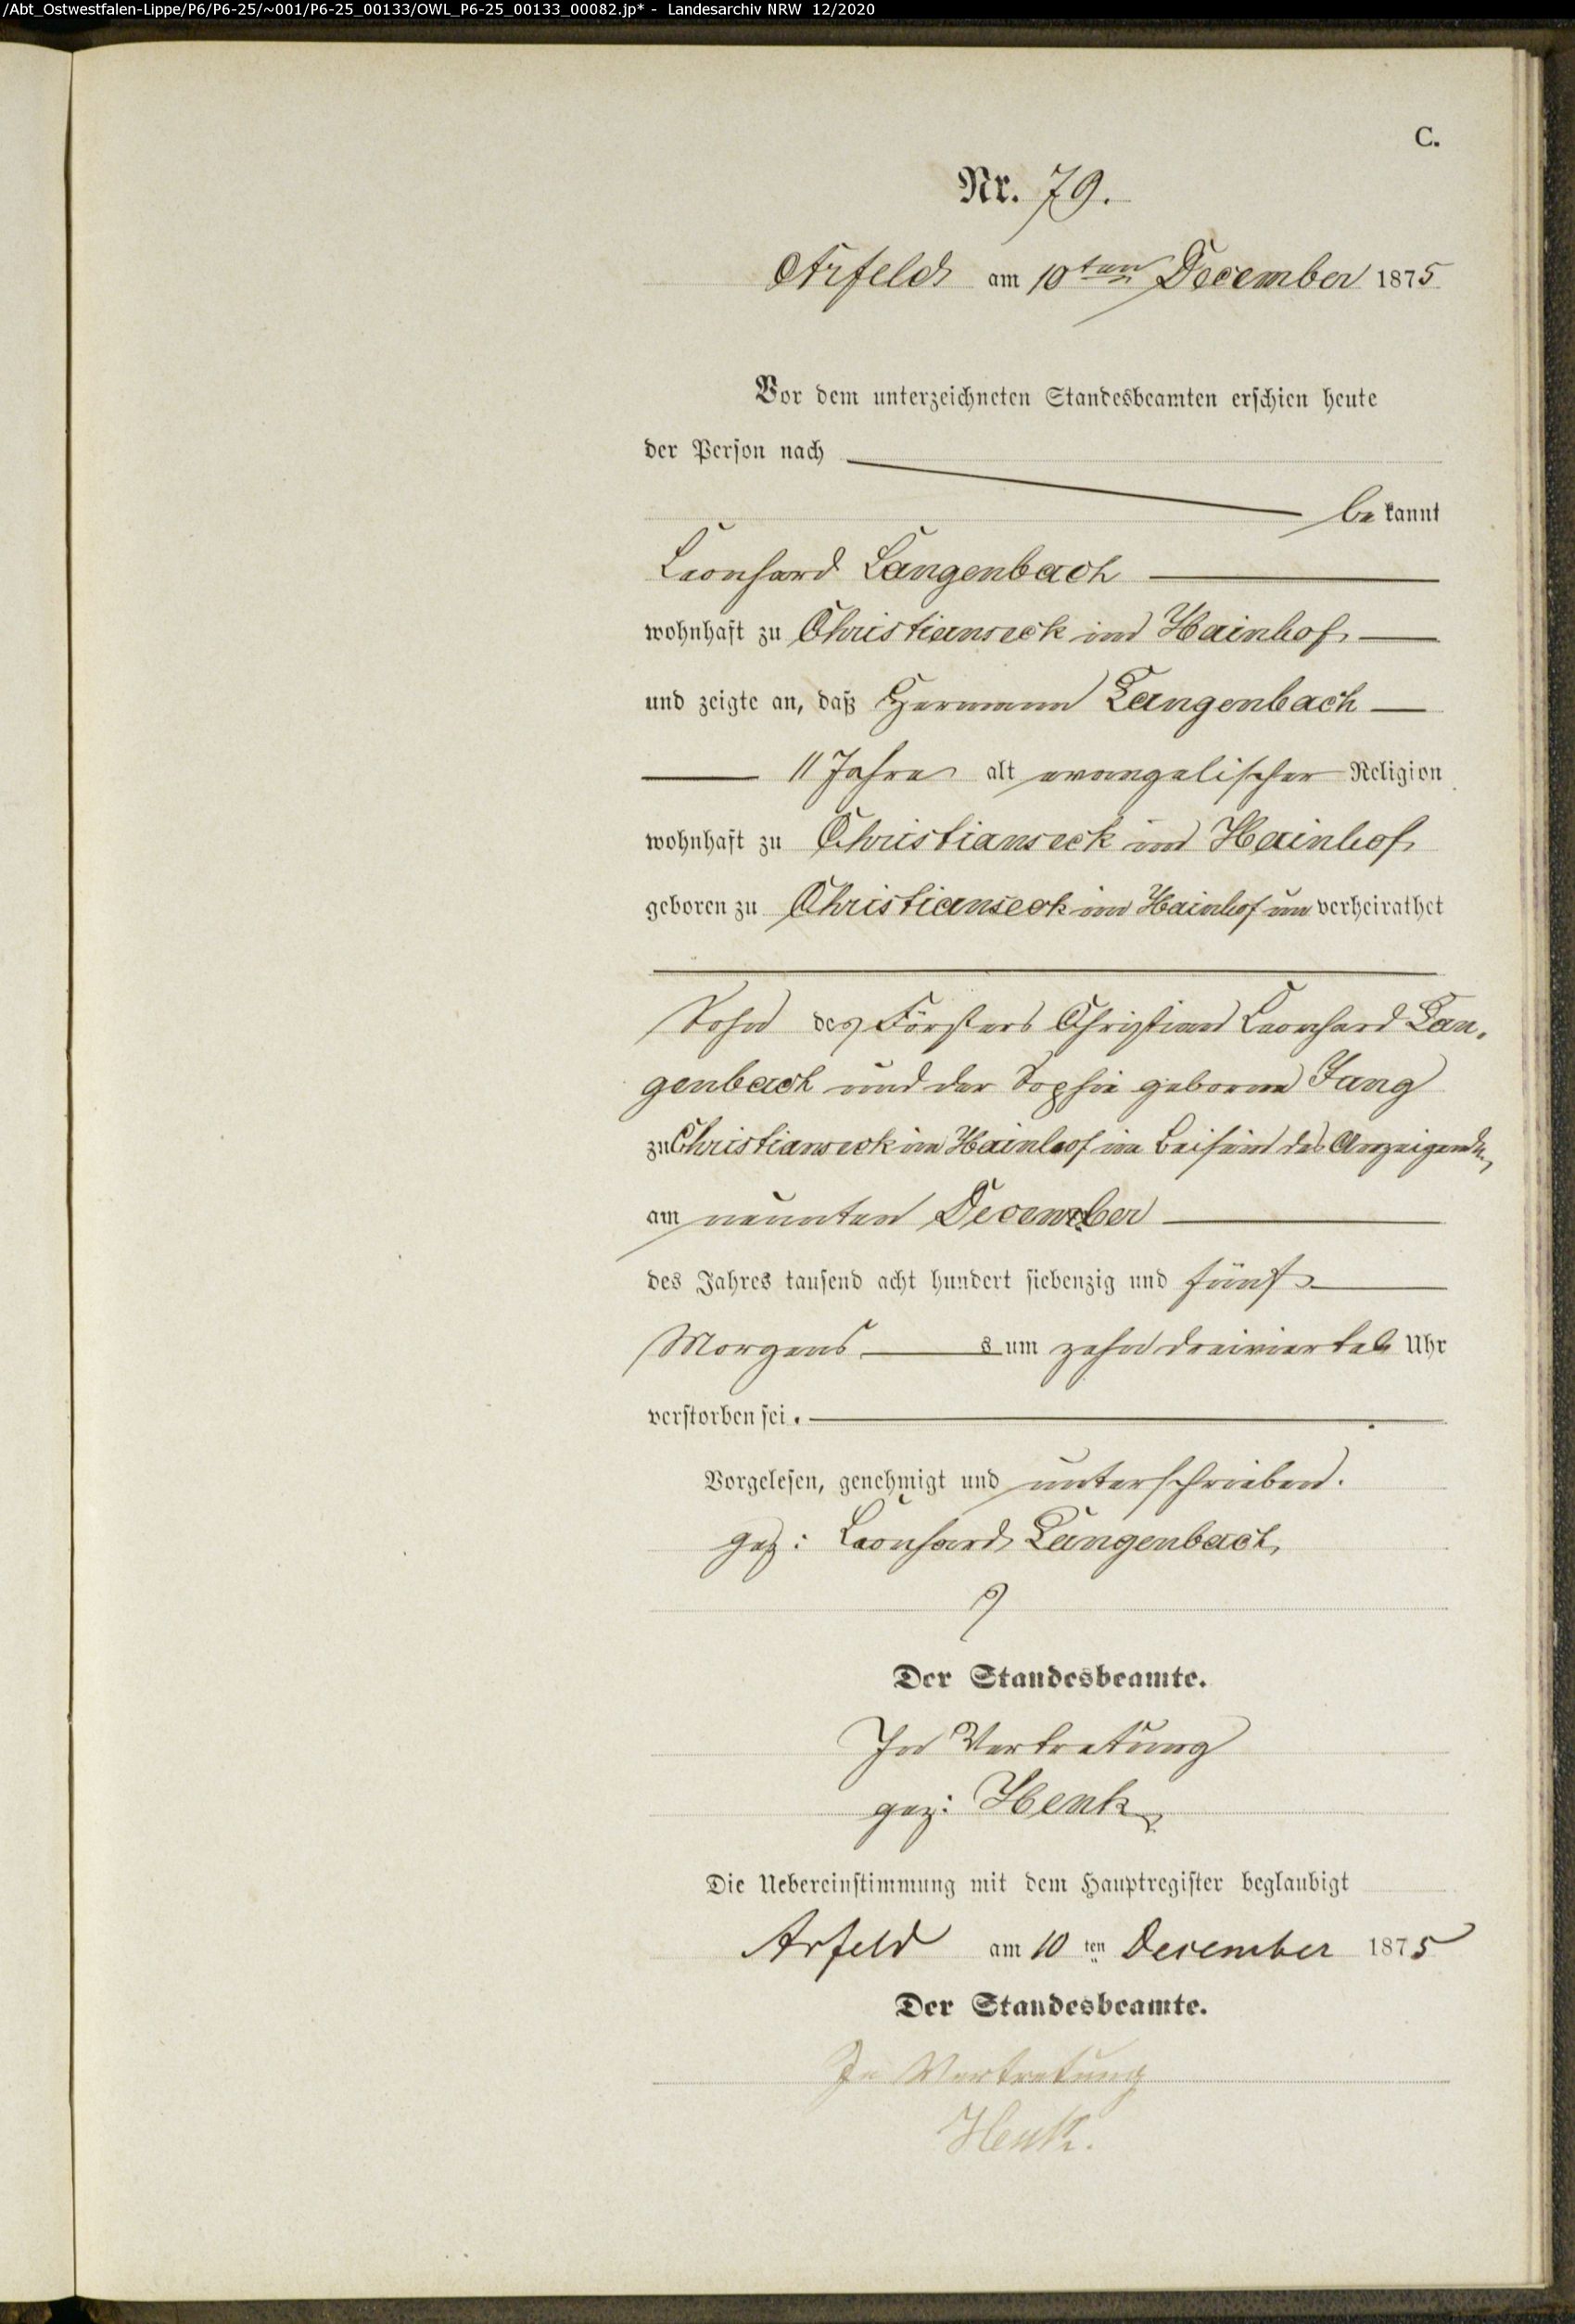 /Abt_Ostwestfalen-Lippe/P6/P6-25/~001/P6-25_00133/OWL_P6-25_00133_00082.jp* - Landesarchiv NRW 12/2020
C.
Nr. 79.
Arfeld am 10ten December 1875
Vor dem unterzeichneten Standesbeamten erschien heute
der Person nach
bekannt
Leonhard Langenbach
wohnhaft zu Christianseck im Hainhof
und zeigte an, daß Hermann Langenbach
11 Jahre alt evangelischer Religion
wohnhaft zu Christianseck im Hainhof
geboren zu Christianseck im Hainhof un verheirathet
Sohn des Försters Christian Leonhard Lan-
genbach und der Sophie geborne Jung
zu Christianseck im Hainhof im Beisein des Anzeigenden,
am neunten December
des Jahres tausend acht hundert siebenzig und fünf
Morgens s um zehn dreiviertel Uhr
verstorben sei.
Vorgelesen, genehmigt und unterschrieben.
gez: Leonhard Langenbach
Der Standesbeamte.
In Vertretung
gez: Henk
Die Uebereinstimmung mit dem Hauptregister beglaubigt
Arfeld am 10 ten December 1875
Der Standesbeamte.
In Vertretung
Henk.